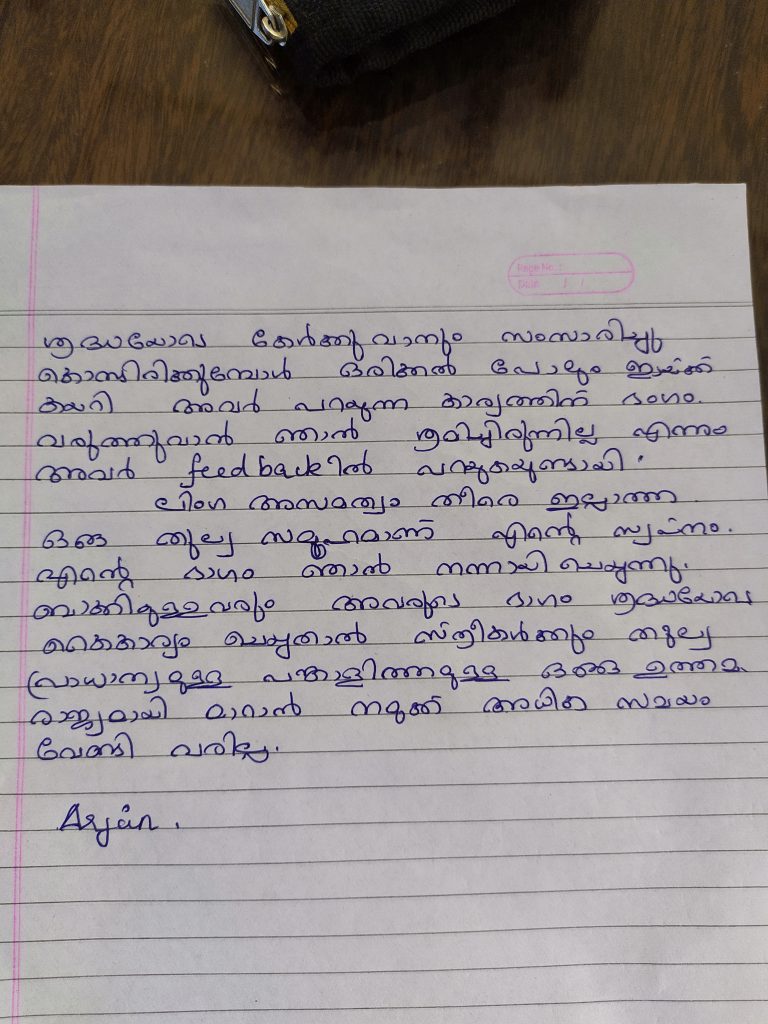 Page No. :
Date / /
ശ്രദ്ധയോടെ കേൾക്കുവാനും സംസാരിച്ചു
കൊണ്ടിരിക്കുമ്പോൾ ഒരിക്കൽ പോലും ഇടയ്ക്ക്
കയറി അവർ പറയുന്ന കാര്യത്തിന് ഭംഗം.
വരുത്തുവാൻ ഞാൻ ശ്രമിച്ചിരുന്നില്ല എന്നും
അവർ feedbackൽ പറയുകയുണ്ടായി.
ലിംഗ അസമത്വം തീരെ ഇല്ലാത്ത
ഒരു തുല്യ സമൂഹമാണ് എന്റെ സ്വപ്നം.
എന്റെ ഭാഗം ഞാൻ നന്നായി ചെയ്യുന്നു.
ബാക്കിയുള്ളവരും അവരുടെ ഭാഗം ശ്രദ്ധയോടെ
കൈകാര്യം ചെയ്താൽ സ്ത്രീകൾക്കും തുല്യ
പ്രാധാന്യമുള്ള പങ്കാളിത്തമുള്ള ഒരു ഉത്തമ
രാജ്യമായി മാറാൻ നമുക്ക് അധിക സമയം
വേണ്ടി വരില്ല.
Arjun.